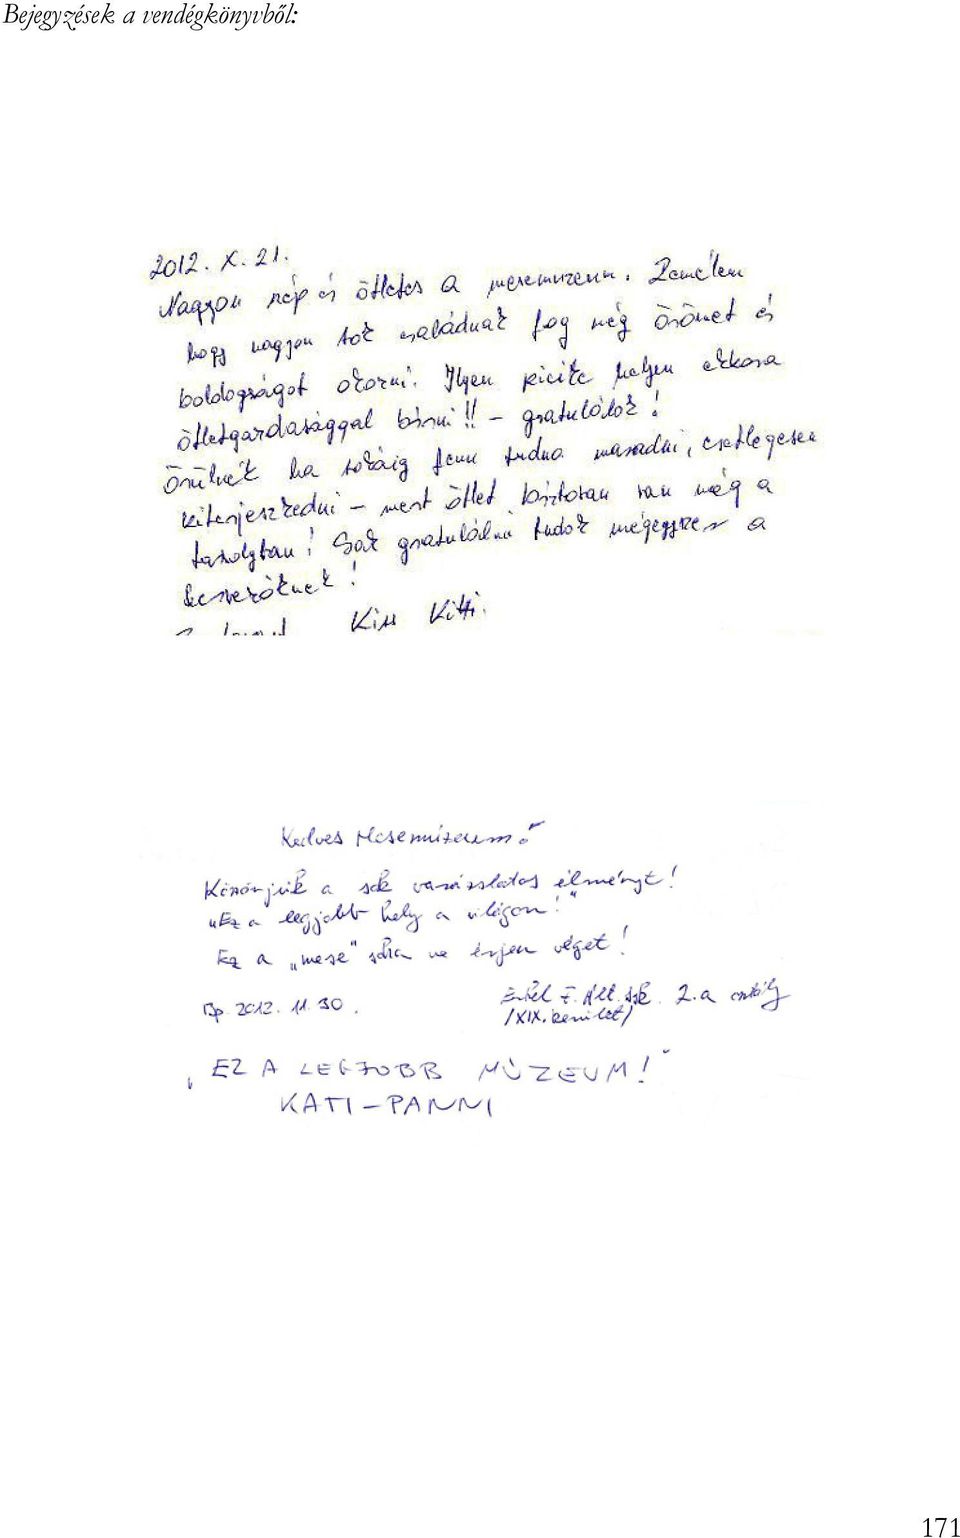 Bejegyzések a vendégkönyvből:
2012. X. 21.
Nagyon szép és ötletes a mesemúzeum. Remélem
hogy nagyon sok családnak fog még örömet és
boldogságot okozni. Ilyen picike helyen ekkora
ötletgazdasággal bírni!! – gratulálok!
Örülnék ha sokáig fenn tudna maradni, esetlegesen
kiterjeszkedni – mert ötlet biztosan van még a
tarsolyban! Csak gratulálni tudok mégegyszer a
Kiss Kitti.
Kedves Mesemúzeum!
Köszönjük a sok varázslatos élményt!
„Ez a legjobb hely a világon!"
Ez a „mese" soha ne érjen véget!
Bp. 2012. 11. 30.
Erkel F. Ált. Isk. 2.a osztály
/XIX. kerület/
„EZ A LEGJOBB MÚZEUM!"
KATI – PANNI
171